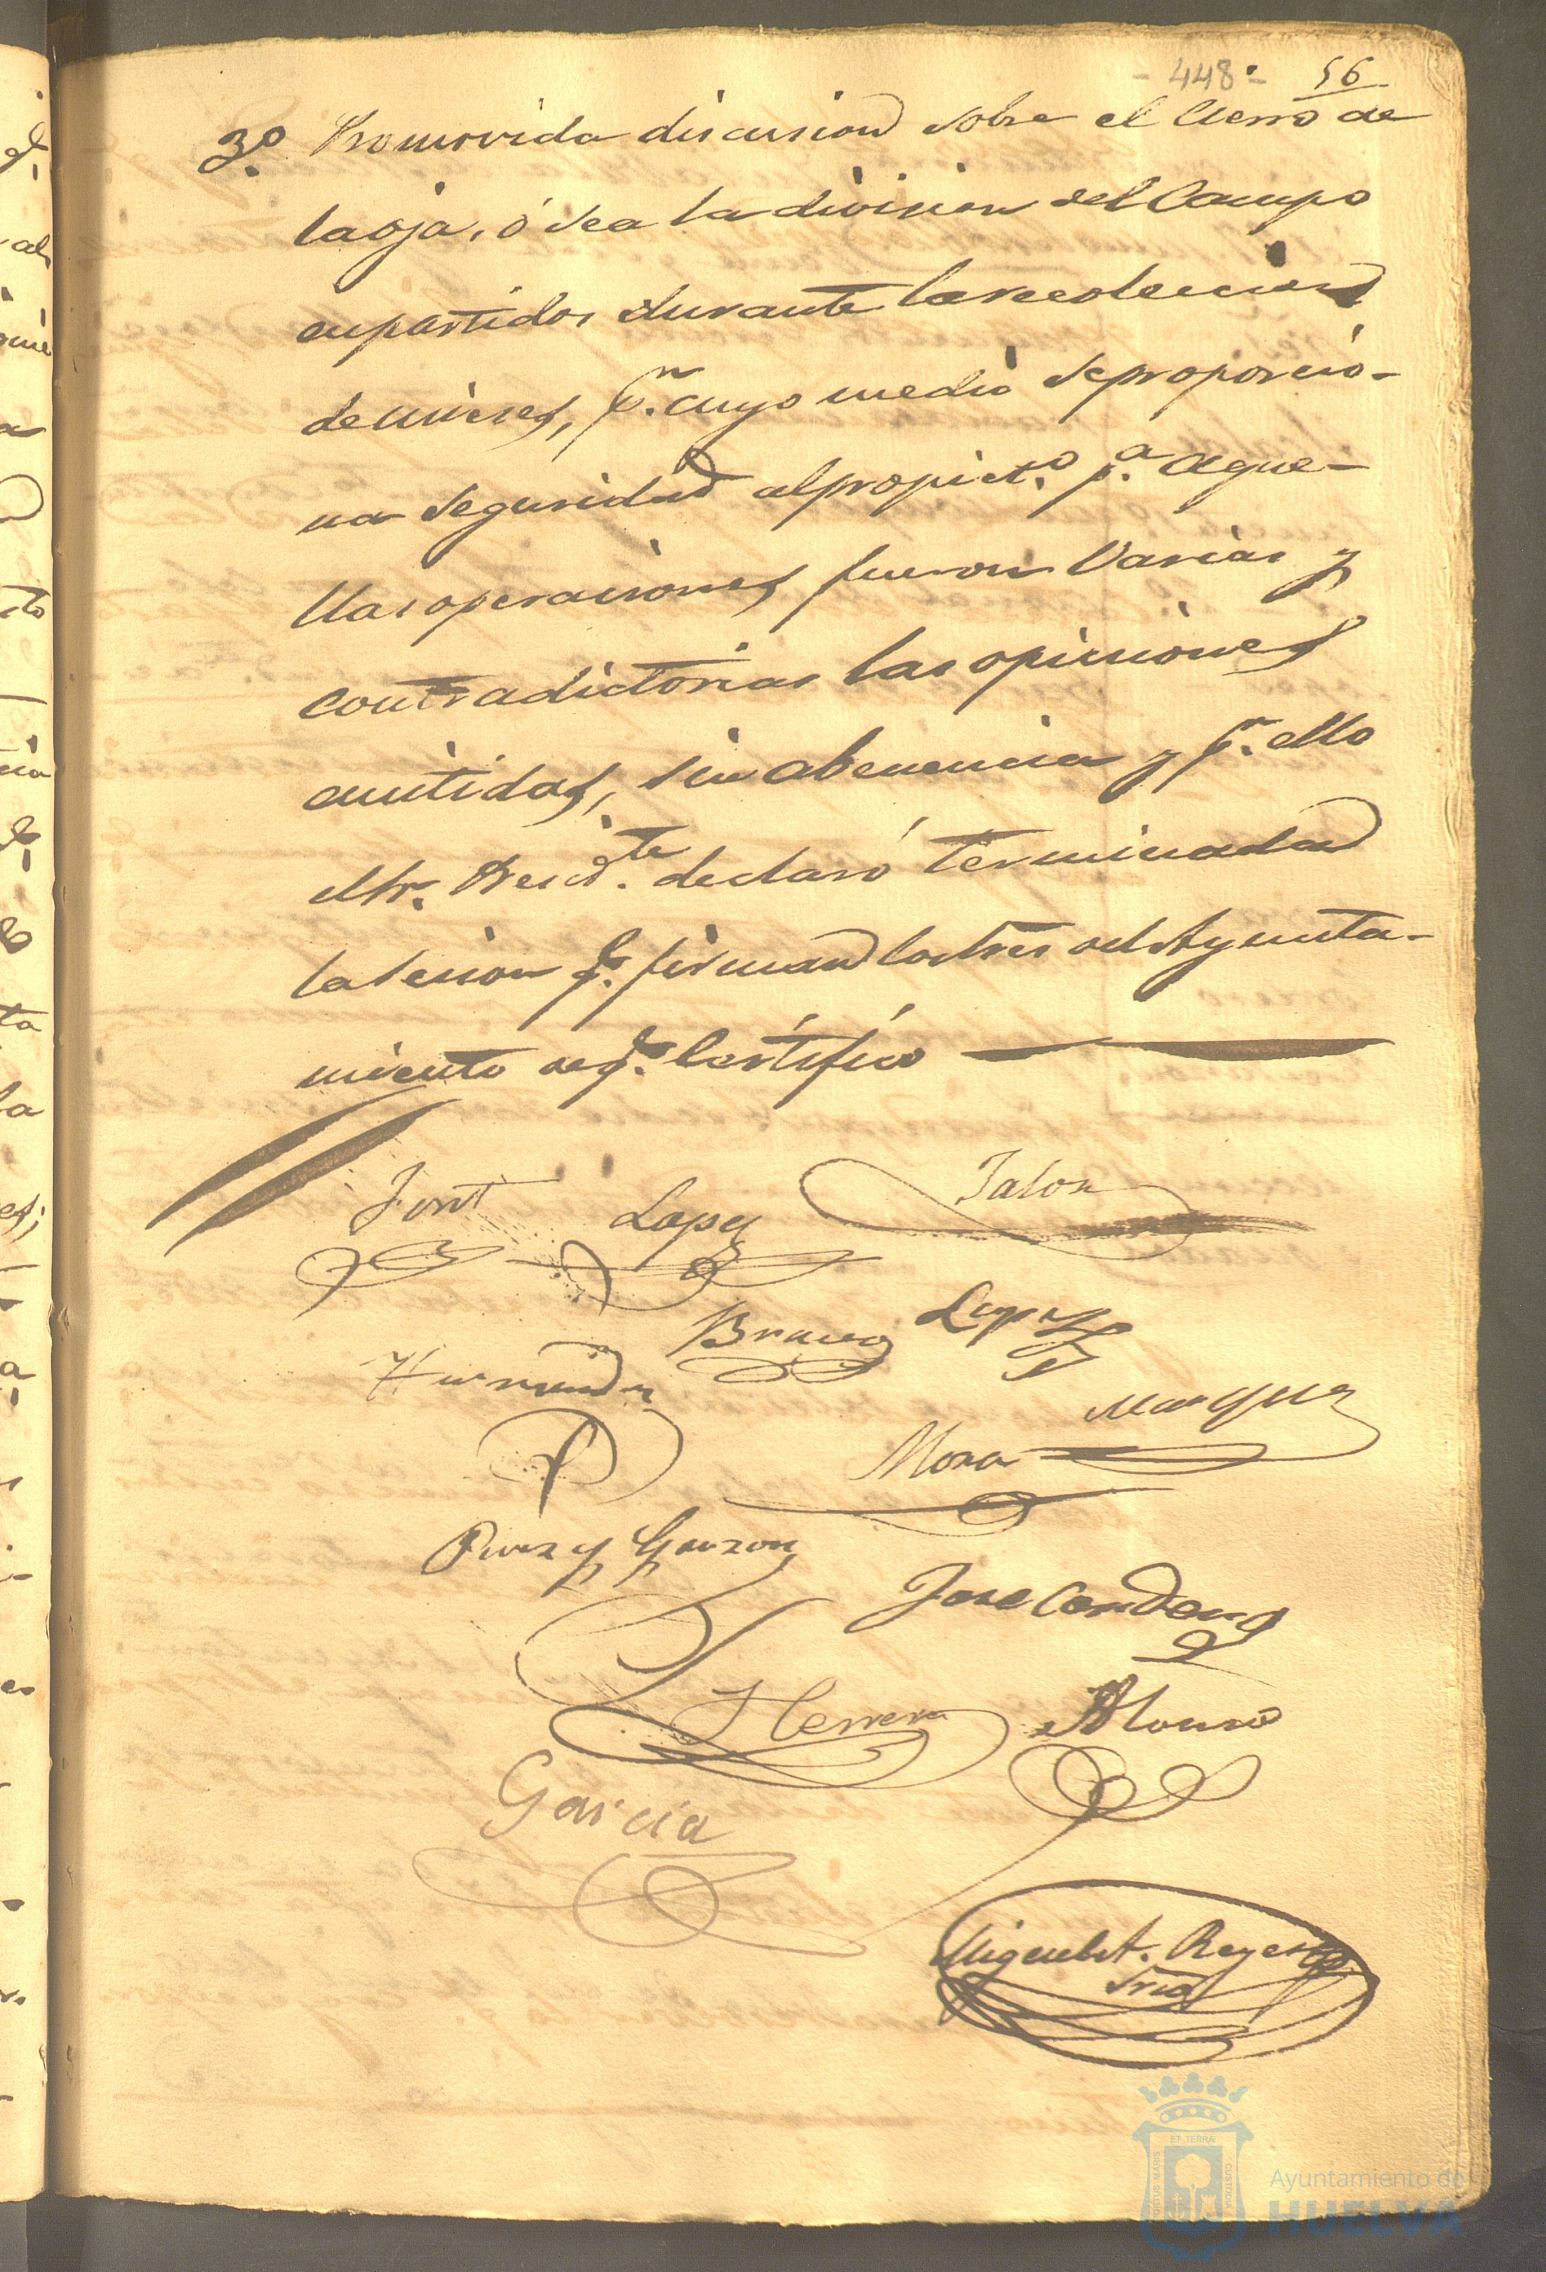 - 448 - 56
3º Promovida discusion sobre el Cierro de
la oja, ó sea la division del Campo
en partidos durante la recoleccion
de mieses, pr. cuyo medio se proporcio-
na seguridad al propieto. pª. aque-
llas operaciones, fueron varias y
contradictorias las opiniones
emitidas, sin abenencia y pr. ello
el Sr. Presidte. declaró terminada
la sesion q. firman los Sres del Ayunta-
miento de q. Certifico
Font Lopez Talon
Bravo Lopez
Hernandez
Marquez
Mora
Perez y Garzon
Jose Cordero
Herrera Alonso
Garcia
Miguel A. Reyes
Srio
ET TERRÆ
PORTUS MARIS
CUSTODIA
Ayuntamiento de
HUELVA